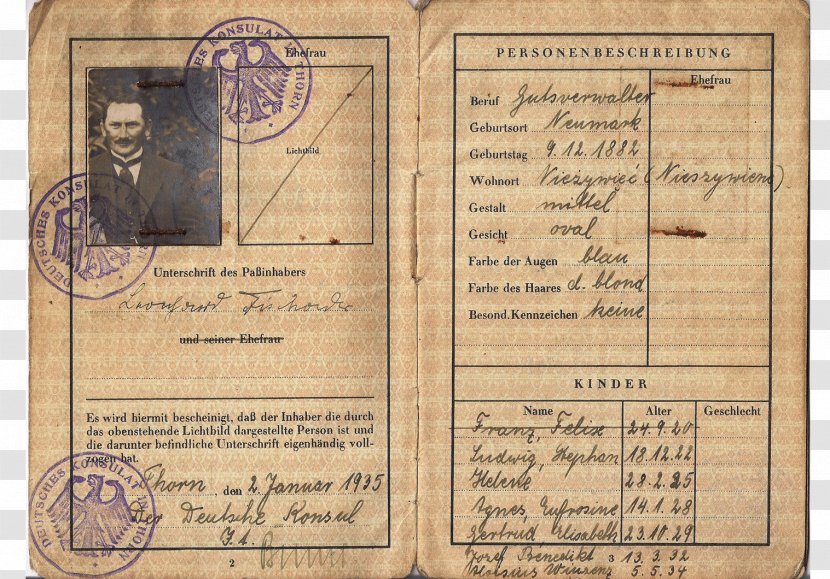 DEUTSCHES KONSULAT THORN
Ehefrau
Lichtbild
DEUTSCHES KONSULAT THORN
Unterschrift des Paßinhabers
und seiner Ehefrau
Es wird hiermit bescheinigt, daß der Inhaber die durch
das obenstehende Lichtbild dargestellte Person ist und
die darunter befindliche Unterschrift eigenhändig voll-
zogen hat.
Thorn, den 2. Januar 1935
Der Deutsche Konsul
DEUTSCHES KONSULAT THORN
2
PERSONENBESCHREIBUNG
Ehefrau
Beruf Gutsverwalter
Geburtsort Neumark
Geburtstag 9.12.1882
Wohnort Nieżywięć (Nieszywienc)
Gestalt mittel
Gesicht oval
Farbe der Augen blau
Farbe des Haares d. blond
Besond. Kennzeichen keine
KINDER
Name Alter Geschlecht
Franz, Felix 24.9.20
Ludwig, Stephan 13.12.22
Helene 28.2.25
Agnes, Eufrosine 14.1.28
Gertrud, Elisabeth 23.10.29
Josef Benedikt 3 13.3.32
Aloisius Winzenz 5.5.34